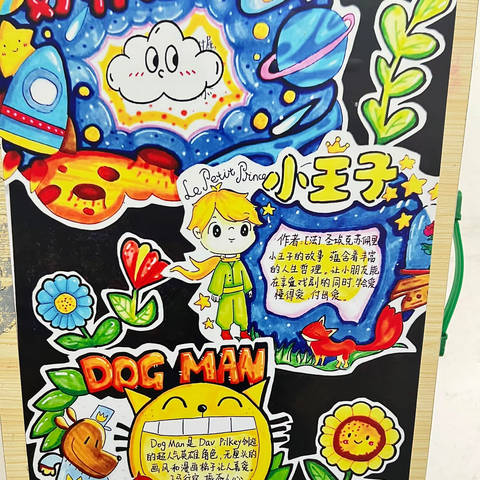 Le Petit Prince
小王子
作者:[法]圣埃克苏佩里
小王子的故事 蕴含着丰富
的人生哲理,让小朋友能
在享受戏剧的同时,学会爱
懂得爱 付出爱
DOG MAN
Dog Man是 Dav Pilkey创造
的超人气英雄角色,无厘头的
画风和漫画格子让人喜爱,